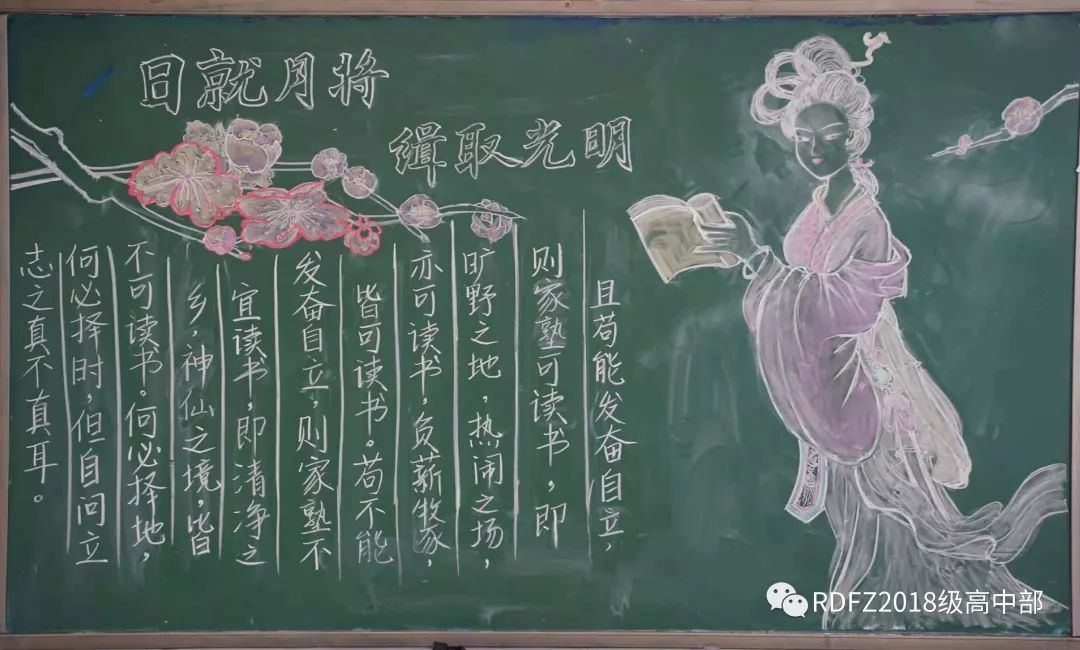 日就月将
缉取光明
且苟能发奋自立，
则家塾可读书，即
旷野之地，热闹之场，
亦可读书，负薪牧豕，
皆可读书。苟不能
发奋自立，则家塾不
宜读书，即清净之
乡，神仙之境，皆
不可读书。何必择地，
何必择时，但自问立
志之真不真耳。
RDFZ2018级高中部